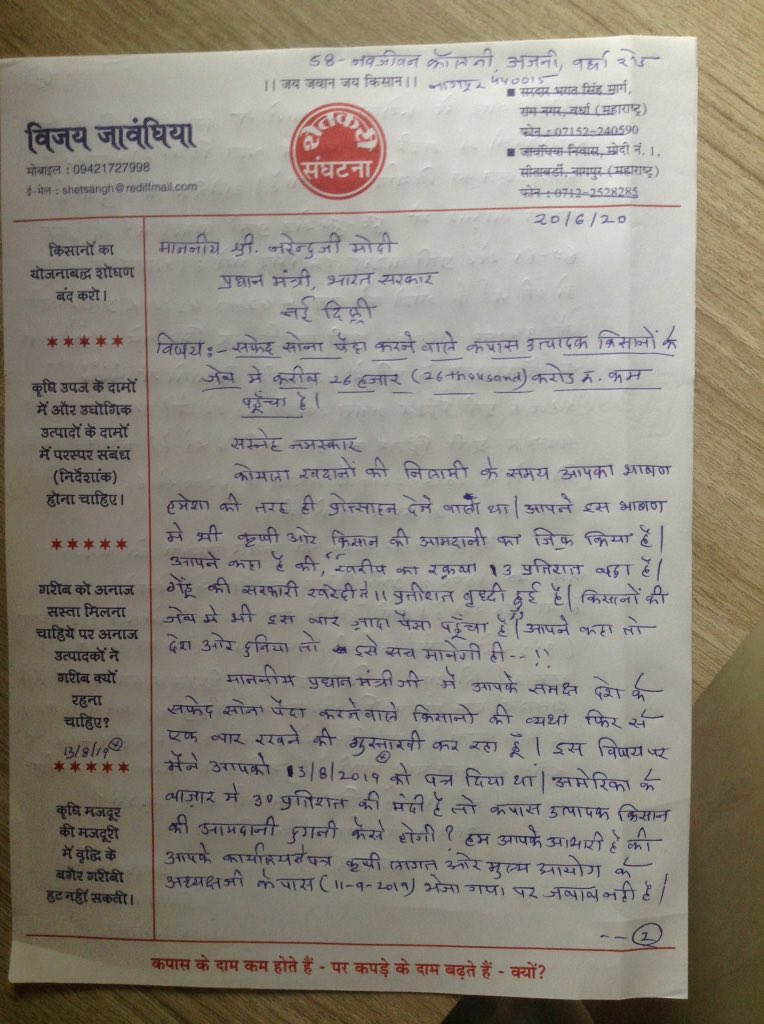 58- नवजीवन कॉलनी, अजनी, वर्धा रोड
नागपुर 440015
।। जय जवान जय किसान।।
विजय जावंधिया
मोबाइल : 09421727998
ई-मेल : shetsangh@rediffmail.com
शेतकरी
संघटना
■ सरदार भगत सिंह मार्ग,
राम नगर, वर्धा (महाराष्ट्र)
फोन : 07152-240590
■ जावंधिया निवास, मोदी नं. 1,
सीताबर्डी, नागपुर (महाराष्ट्र)
फोन : 0712-2528285
20/6/20
किसानों का
योजनाबद्ध शोषण
बंद करो।
★★★★★
कृषि उपज के दामों
में और उद्योगिक
उत्पादों के दामों
में परस्पर संबंध
(निर्देशांक)
होना चाहिए।
★★★★★
गरीब को अनाज
सस्ता मिलना
चाहिये पर अनाज
उत्पादकों ने
गरीब क्यों
रहना
चाहिए?
13/8/19
★★★★★
कृषि मजदूर
की मजदूरी
में वृद्धि के
बगैर गरीबी
हट नहीं सकती।
माननीय श्री. नरेन्द्रजी मोदी
प्रधान मंत्री, भारत सरकार
नई दिल्ली
विषय :- सफेद सोना पैदा करने वाले कपास उत्पादक किसानों के
जेब मे करीब 26 हजार (26 thousand) करोड रु. कम
पहूँचा है।
सस्नेह नमस्कार
कोयला खदानों की निलामी के समय आपका भाषण
हमेशा की तरह ही प्रोत्साहन देने वाला था। आपने इस भाषण
मे भी कृषी और किसान की आमदानी का जिक्र किया है।
आपने कहा है की, खरीप का रकबा 13 प्रतिशत बढा है।
गेंहू की सरकारी खरेदी मे 11 प्रतीशत वृध्दी हुई है। किसानों की
जेब मे भी इस बार जादा पैसा पहूँचा है। आपने कहा तो
देश और दुनिया तो इसे सच मानेगी ही --!!
माननीय प्रधान मंत्रीजी मे आपके समक्ष देश के
सफेद सोना पैदा करने वाले किसानों की व्यथा फिर से
एक बार रखने की गुस्ताखी कर रहा हूँ। इस विषय पर
मैंने आपको 13/8/2019 को पत्र दिया था। अमेरिका के
बाजार मे 30 प्रतिशत की मंदी है तो कपास उत्पादक किसान
की आमदानी दुगनी कैसे होगी? हम आपके आभारी है की
आपके कार्यालय से पत्र कृषी लागत और मुल्य आयोग के
अध्यक्षजी के पास (11-9-2019) भेजा गया पर जवाब नही है।
--(2)
कपास के दाम कम होते हैं - पर कपड़े के दाम बढ़ते हैं - क्यों?